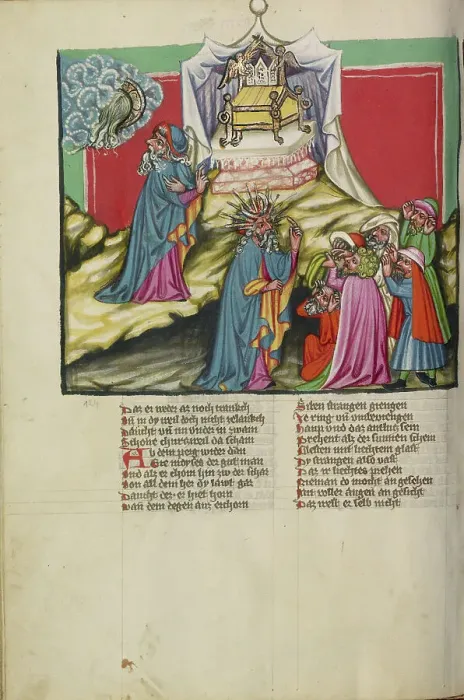 Daz er weder az noch tranckh
in dy weil doch nicht zelanckh
Daucht vn im vnder zwain
Schone churczweil da schain
Ab dem perg wider dan
Gie moyses der gut man
Vnd als er chom hin zu der schar
Von all dem her dy lawt gar
Daucht der er hiet horn
Van dem degen auz erchorn
Siben strangen giengen
Ze ring vn vmbeviengen
Haup vnd daz antlucz sein
Prehent als der sunnen schein
liechtem glast
Dy strangen also vast
Daz liechtes prehen
Nieman do mocht an gesehen
voller augen an gesicht
Daz west er selb nicht